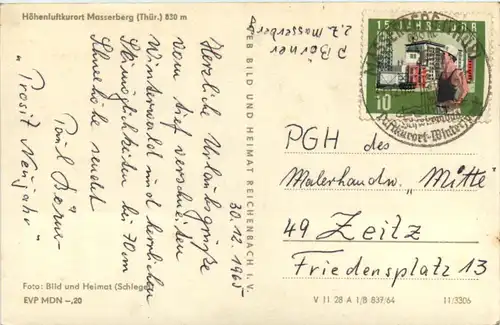 Höhenluftkurort Masserberg (Thür.) 830 m
Herzliche Urlaubsgrüße
vom tief verschneiten
Winterwald und herrlichen
Skimöglichkeiten bei 70 cm
Schneehöhe sendet
Paul
"Prosit Neujahr"
30.12.1965
P. Börner
z.Z. Masserberg
VEB BILD UND HEIMAT REICHENBACH I. V.
15 JAHRE DDR
10
PGH des
Malerhandw. "Mitte"
49 Zeitz
Friedensplatz 13
Foto: Bild und Heimat (Schlegel)
EVP MDN -,20
V 11 28 A 1/B 837/64
11/3306